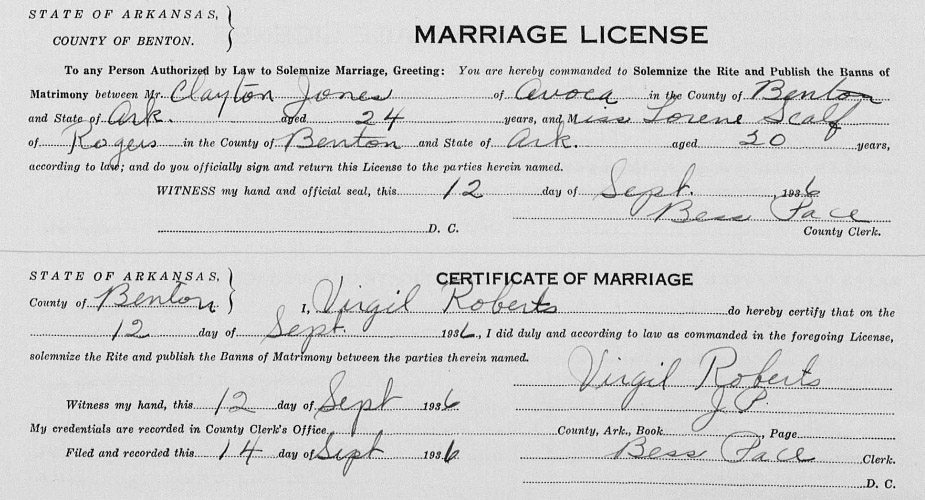 STATE OF ARKANSAS,
COUNTY OF BENTON.
MARRIAGE LICENSE
To any Person Authorized by Law to Solemnize Marriage, Greeting: You are hereby commanded to Solemnize the Rite and Publish the Banns of
Matrimony between Mr. Clayton Jones of Avoca in the County of Benton
and State of Ark. aged 24 years, and Miss Lorene Scalf
of Rogers in the County of Benton and State of Ark. aged 20 years,
according to law; and do you officially sign and return this License to the parties herein named.
WITNESS my hand and official seal, this 12 day of Sept., 1936
Bess Pace
D. C. County Clerk.
STATE OF ARKANSAS,
CERTIFICATE OF MARRIAGE
County of Benton I, Virgil Roberts do hereby certify that on the
12 day of Sept. 1936, I did duly and according to law as commanded in the foregoing License,
solemnize the Rite and publish the Banns of Matrimony between the parties therein named.
Virgil Roberts
Witness my hand, this 12 day of Sept 1936 J.P.
My credentials are recorded in County Clerk's Office County, Ark., Book , Page
Filed and recorded this 14 day of Sept 1936 Bess Pace Clerk.
D. C.